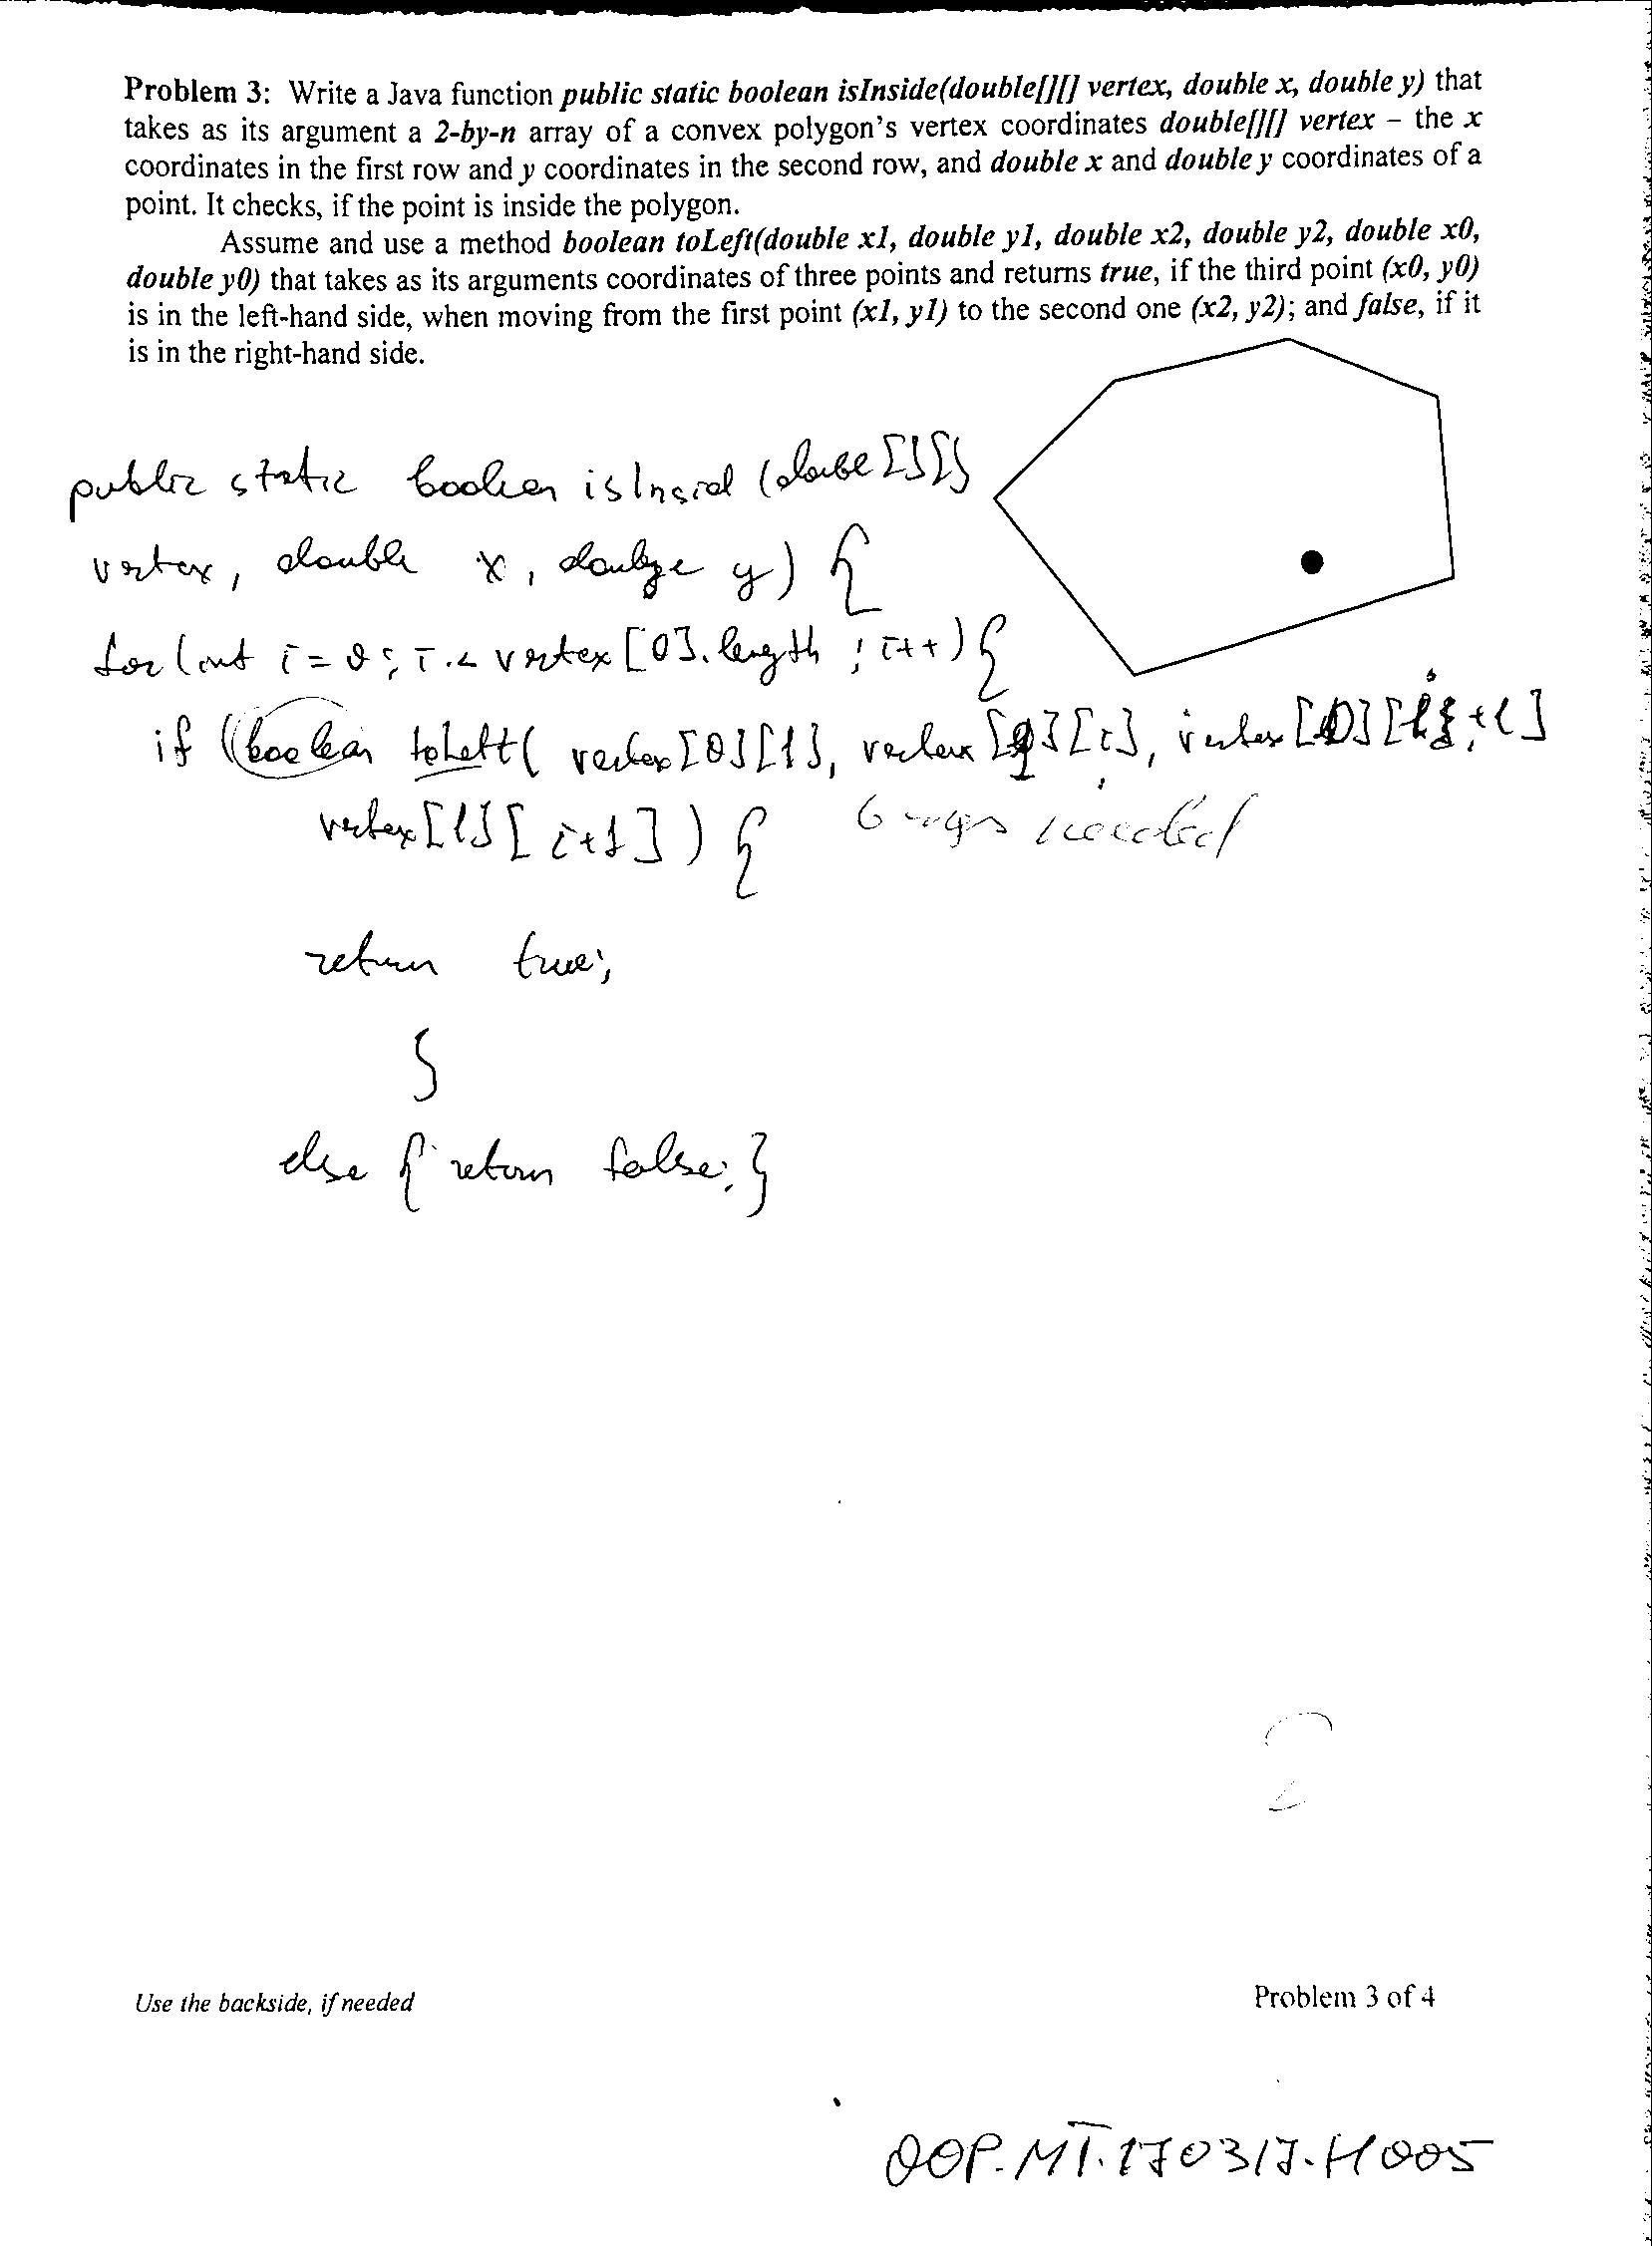 Problem 3: Write a Java function public static boolean isInside(double[][] vertex, double x, double y) that
takes as its argument a 2-by-n array of a convex polygon's vertex coordinates double[][] vertex – the x
coordinates in the first row and y coordinates in the second row, and double x and double y coordinates of a
point. It checks, if the point is inside the polygon.
Assume and use a method boolean toLeft(double x1, double y1, double x2, double y2, double x0,
double y0) that takes as its arguments coordinates of three points and returns true, if the third point (x0, y0)
is in the left-hand side, when moving from the first point (x1, y1) to the second one (x2, y2); and false, if it
is in the right-hand side.
public static boolean isInsid (double [][]
vertex, double x, double y) {
for (int i = 0; i < vertex [0].length ; i++) {
if (boolean toLeft( vertex[0][i], vertex [1][i], vertex[0][i+1]
vertex[1][i+1]) { 6 args needed
return true;
}
else { return false; }
Use the backside, if needed
Problem 3 of 4
OOP.MT.170317.H005